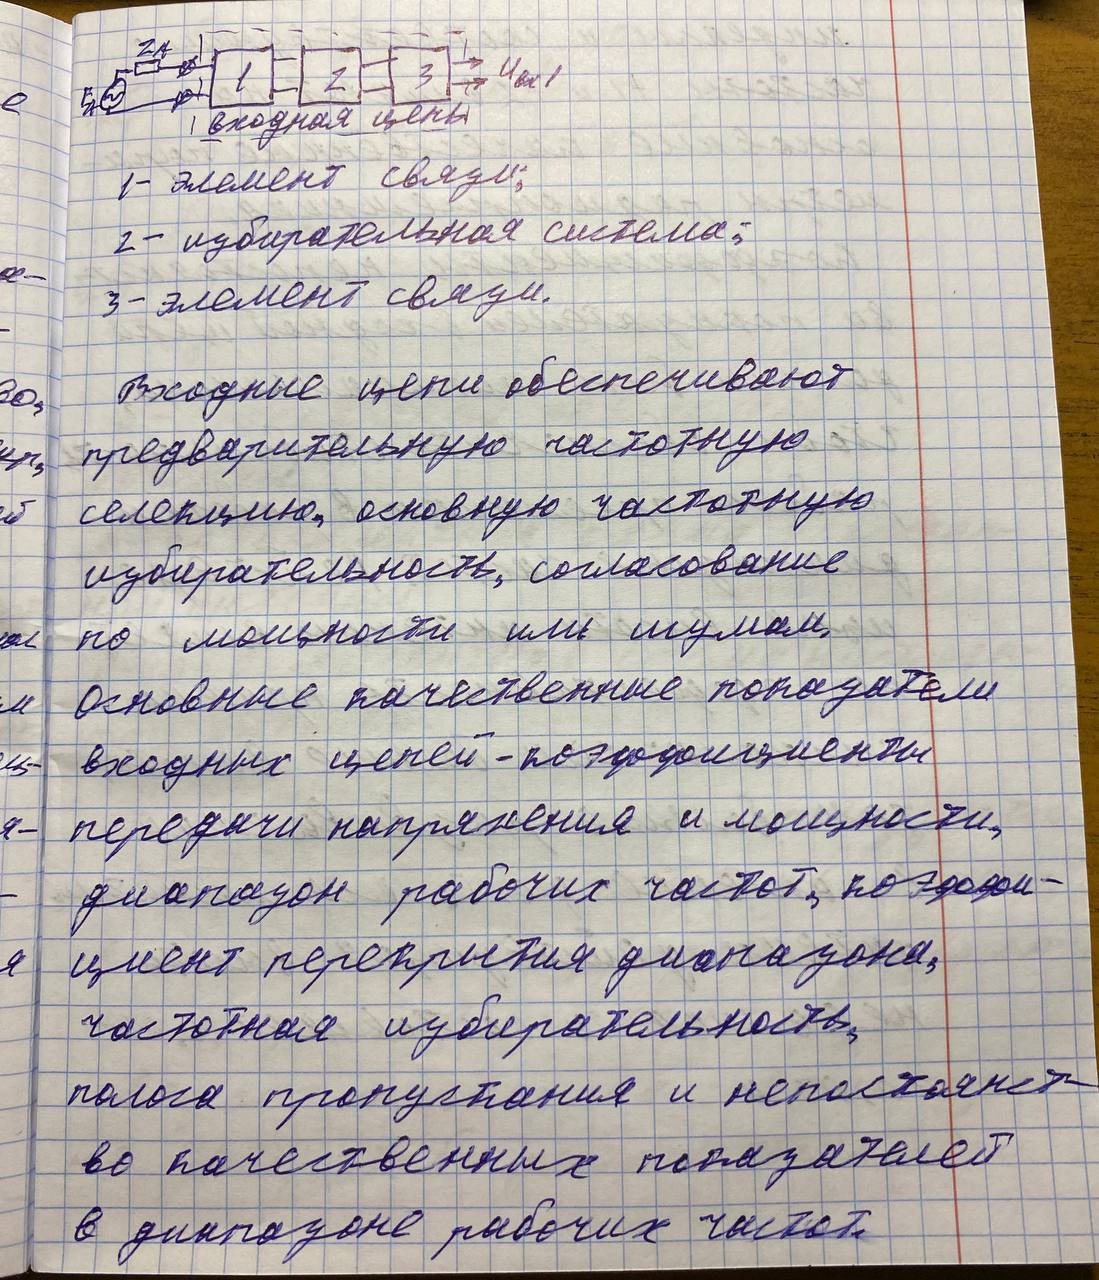 ZA
EA
1 2 3 Uвх1
входная цепь
1- элемент связи;
2- избирательная система;
3- элемент связи.
Входные цепи обеспечивают
предварительную частотную
селекцию, основную частотную
избирательность, согласование
по мощности или шумам.
Основные качественные показатели
входных цепей - коэффициенты
передачи напряжения и мощности,
диапазон рабочих частот, коэффи-
циент перекрытия диапазона,
частотная избирательность,
полоса пропускания и непостоянст-
во качественных показателей
в диапазоне рабочих частот.